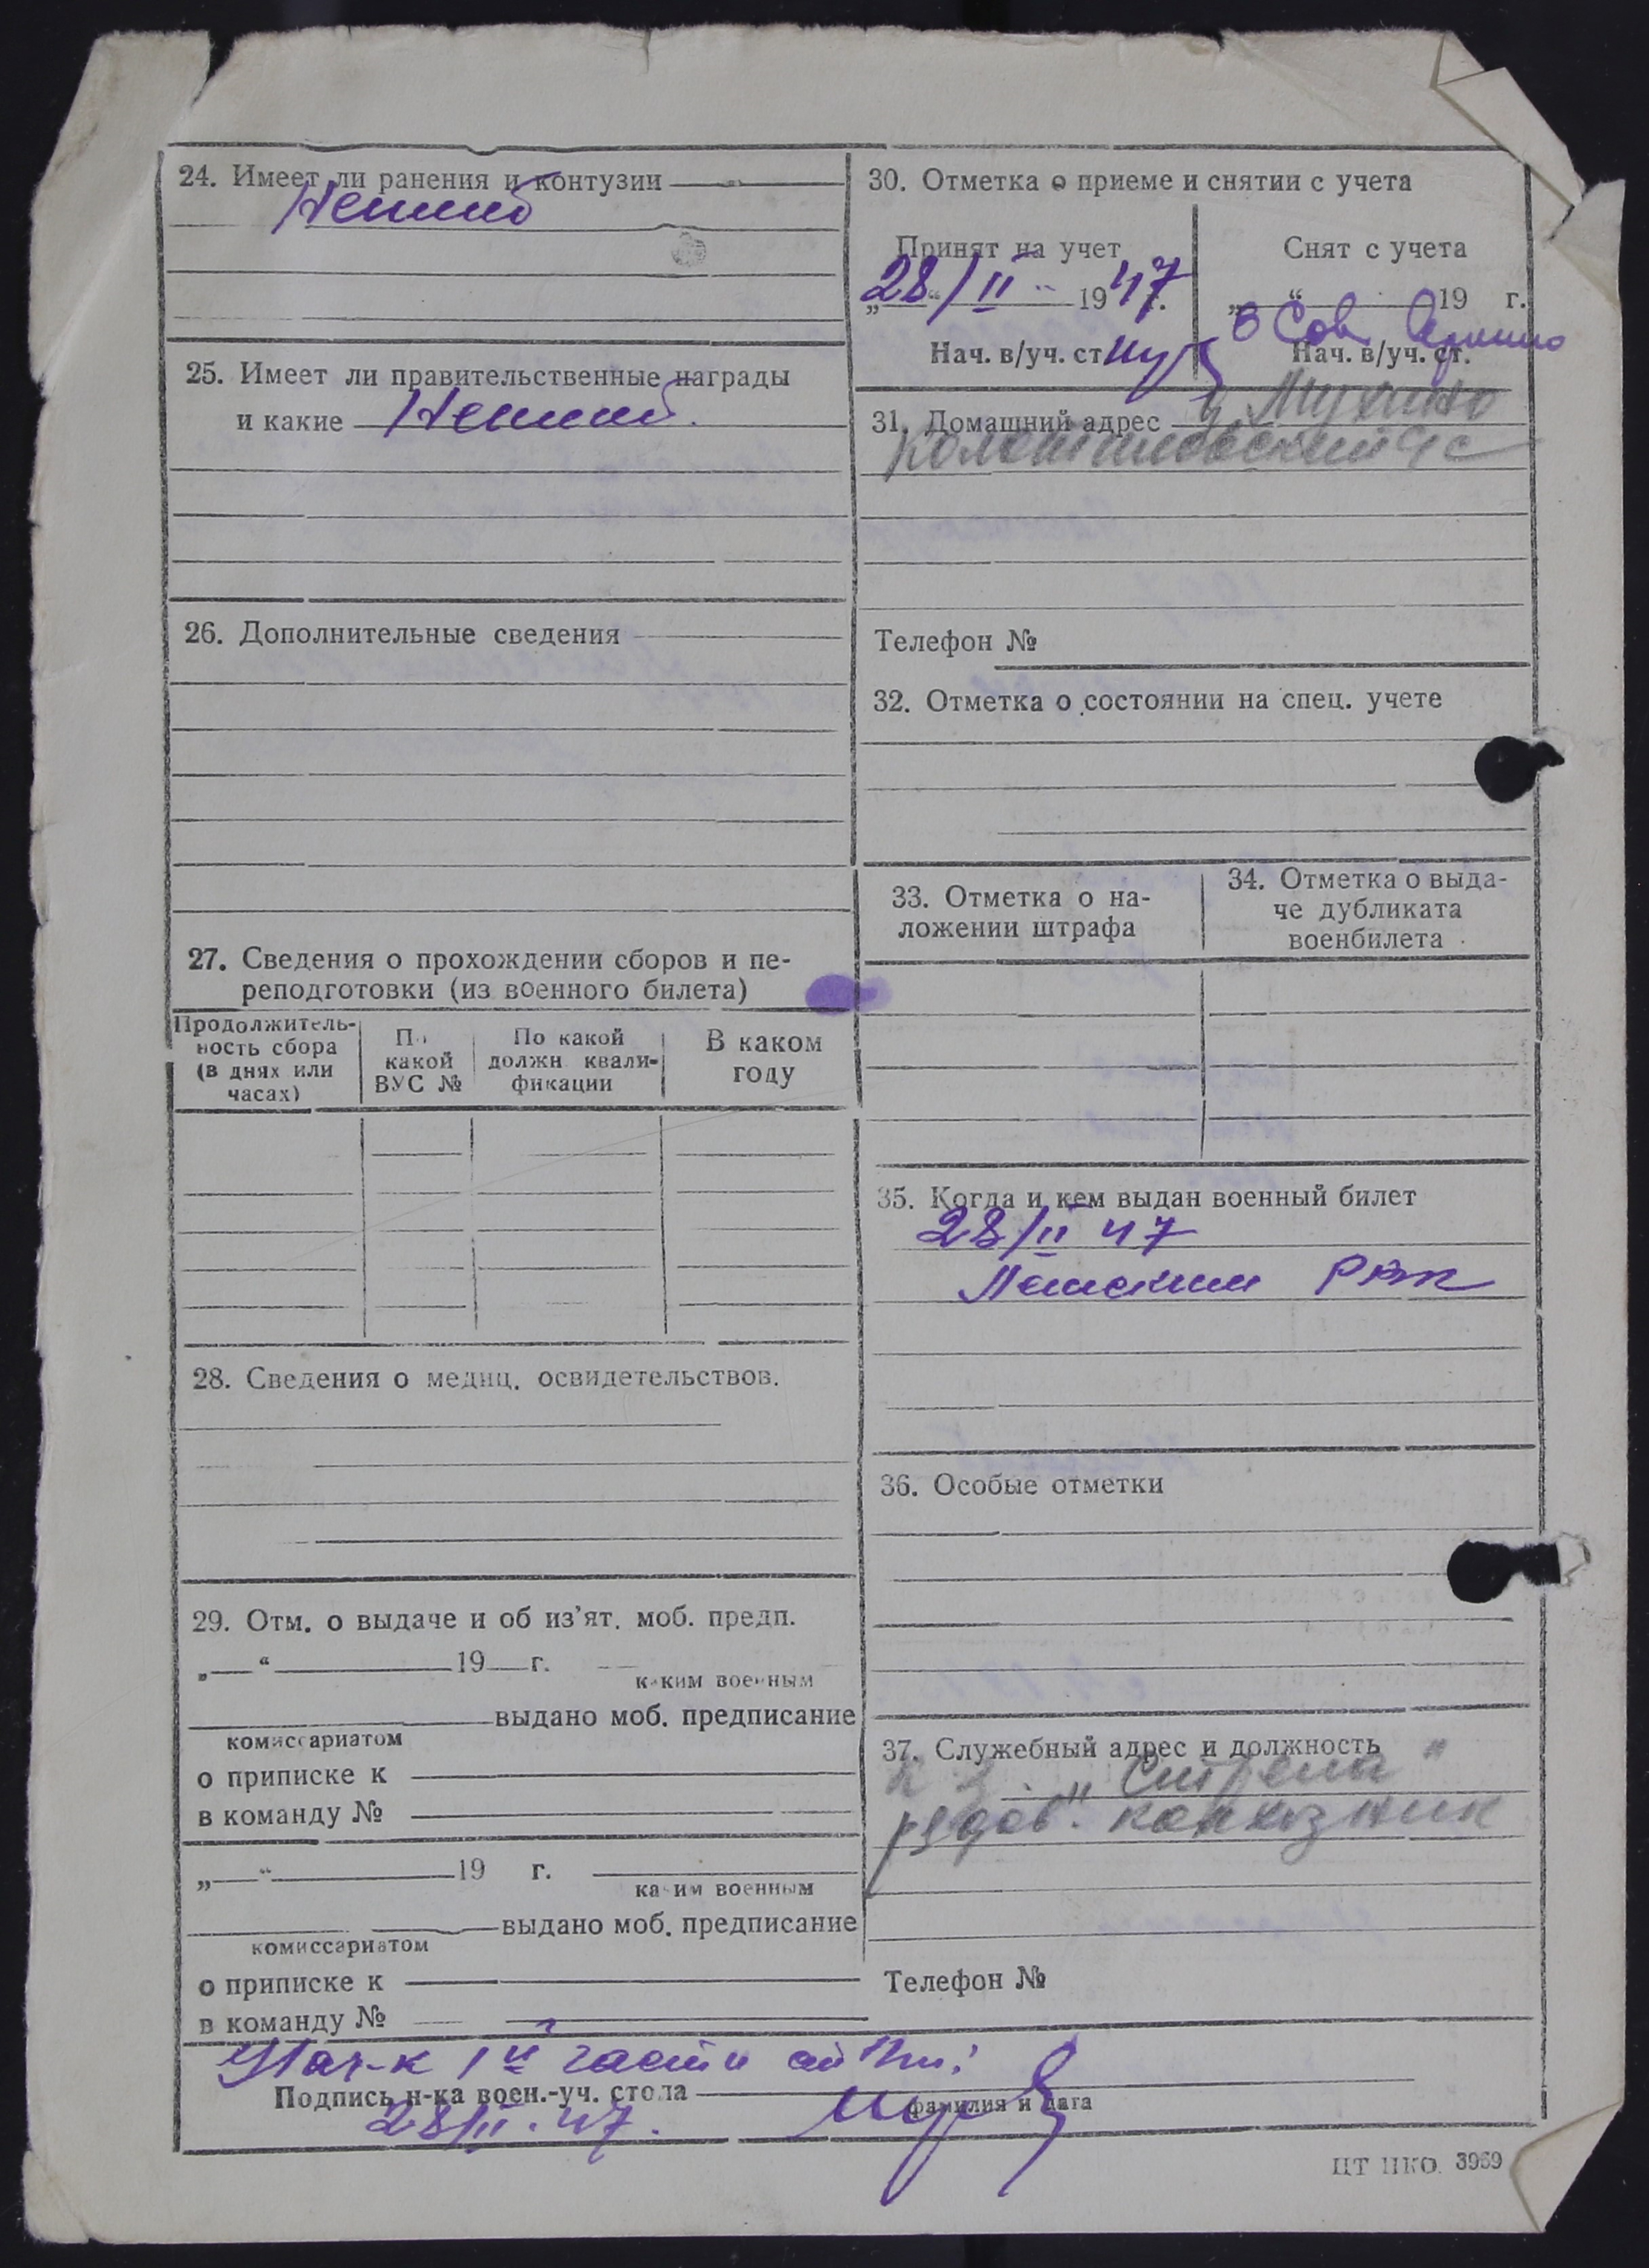 24. Имеет ли ранения и контузии
25. Имеет ли правительственные награды
и какие
26. Дополнительные сведения
27. Сведения о прохождении сборов и пе-
реподготовки (из военного билета)
Продолжитель-
ность сбора
(в днях или
часах)
По
какой
ВУС №
По какой
должн. квали-
фикации
В каком
году
28. Сведения о медиц. освидетельствов.
29. Отм. о выдаче и об из'ят. моб. предп.
„ “ 19 г.
каким военным
выдано моб. предписание
комиссариатом
о приписке к
в команду №
„ “ 19 г.
каким военным
выдано моб. предписание
комиссариатом
о приписке к
в команду №
30. Отметка о приеме и снятии с учета
Принят на учет
„28/II“ 1947 г.
Нач. в/уч. ст.
Снят с учета
„ “ 19 г.
в Сов Армию
Нач. в/уч. ст.
31. Домашний адрес д. Мухино
с/с
Телефон №
32. Отметка о состоянии на спец. учете
33. Отметка о на-
ложении штрафа
34. Отметка о выда-
че дубликата
военбилета
35. Когда и кем выдан военный билет
28/II 47
РВК
36. Особые отметки
37. Служебный адрес и должность
к-з „Стрела“
рядов. колхозник
Телефон №
Нач-к 1й части
Подпись н-ка воен.-уч. стола
фамилия и дата
28/II.47.
ЦТ НКО. 3969